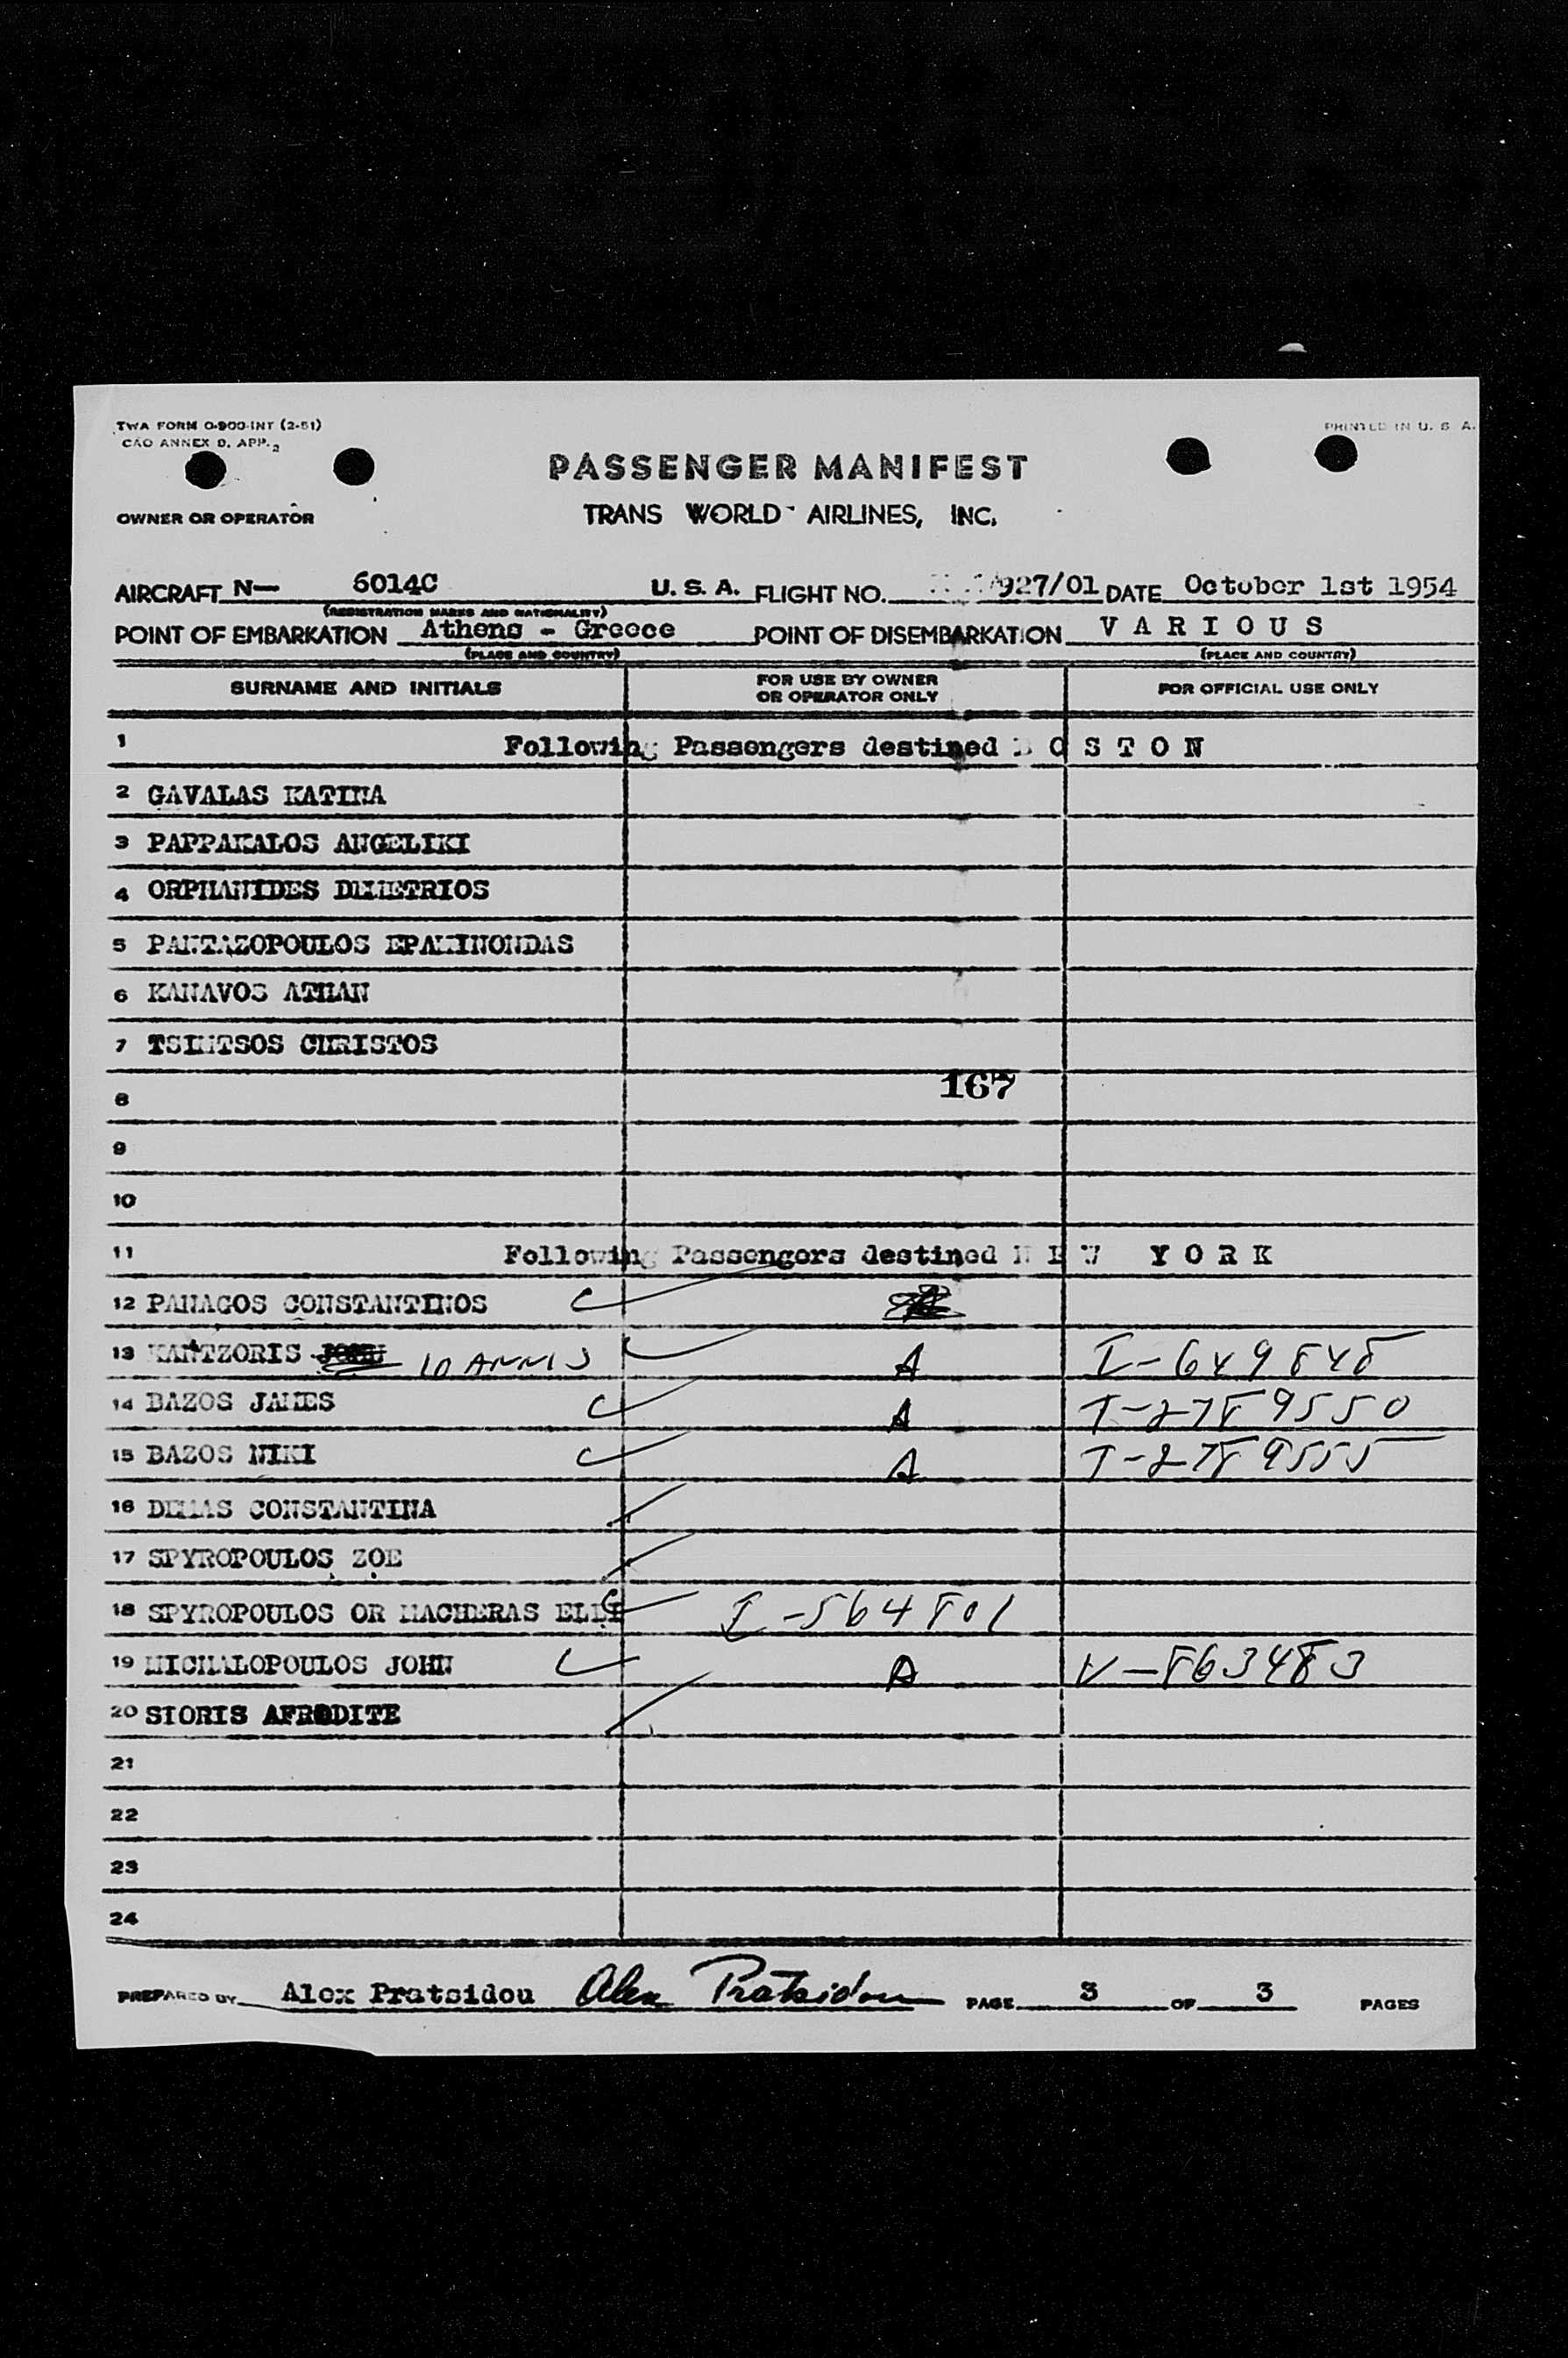 TWA FORM O-900-INT (2-51)
CAO ANNEX 9, APP. 2
PRINTED IN U. S. A.
PASSENGER MANIFEST
OWNER OR OPERATOR
TRANS WORLD AIRLINES, INC.
AIRCRAFT N— 6014C U. S. A. FLIGHT NO. 927/01 DATE October 1st 1954
(REGISTRATION MARKS AND NATIONALITY)
POINT OF EMBARKATION Athens - Greece POINT OF DISEMBARKATION V A R I O U S
(PLACE AND COUNTRY) (PLACE AND COUNTRY)
SURNAME AND INITIALS FOR USE BY OWNER OR OPERATOR ONLY FOR OFFICIAL USE ONLY
1 Following Passengers destined B O S T O N
2 GAVALAS KATINA
3 PAPPAKALOS ANGELIKI
4 ORPHANIDES DEMETRIOS
5 PANTAZOPOULOS EPAMINONDAS
6 KANAVOS ATHAN
7 TSIMTSOS CHRISTOS
8 167
9
10
11 Following Passengers destined N E W Y O R K
12 PANAGOS CONSTANTINOS
13 KANTZORIS JOHN IOANNIS A I-649848
14 BAZOS JAMES A T-2789550
15 BAZOS NIKI A T-2789555
16 DEMAS CONSTANTINA
17 SPYROPOULOS ZOE
18 SPYROPOULOS OR MACHERAS ELLI I-564801
19 MICHALOPOULOS JOHN A V-863483
20 SIORIS AFRODITE
21
22
23
24
PREPARED BY Alex Pratsidou Alex Pratsidou PAGE 3 OF 3 PAGES